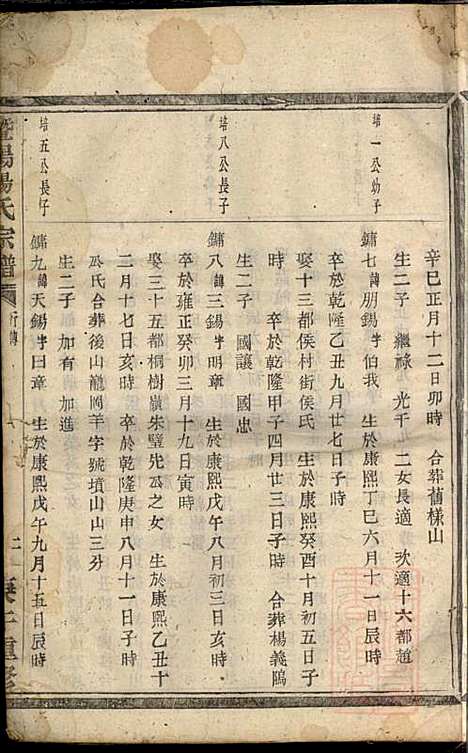 辛巳正月十二日卯時　合葬舊樣山
生二子　繼祿　光千　二女長適　次適十六都趙
培一公幼子
鏞七諱朋錫字伯我　生於康熙丁巳六月十一日辰時
卒於乾隆乙丑九月廿七日子時
娶十三都侯村街侯氏　生於康熙癸酉十月初五日子
時　卒於乾隆甲子四月廿三日子時　合葬楊義隝
生二子　國讓　國忠
培八公長子
鏞八諱三錫字明章　生於康熙戊午八月初三日亥時
卒於雍正癸卯三月十九日寅時
娶三十五都桐樹嶺朱璧先公之女　生於康熙乙丑十
二月十七日亥時　卒於乾隆庚申八月十一日子時
公氏合葬後山龍岡羊字號墳山山三分
生二子　加有　加進
培五公長子
鏞九諱天錫字日章　生於康熙戊午九月十五日辰時
暨陽楊氏宗譜　行傳　二　重修